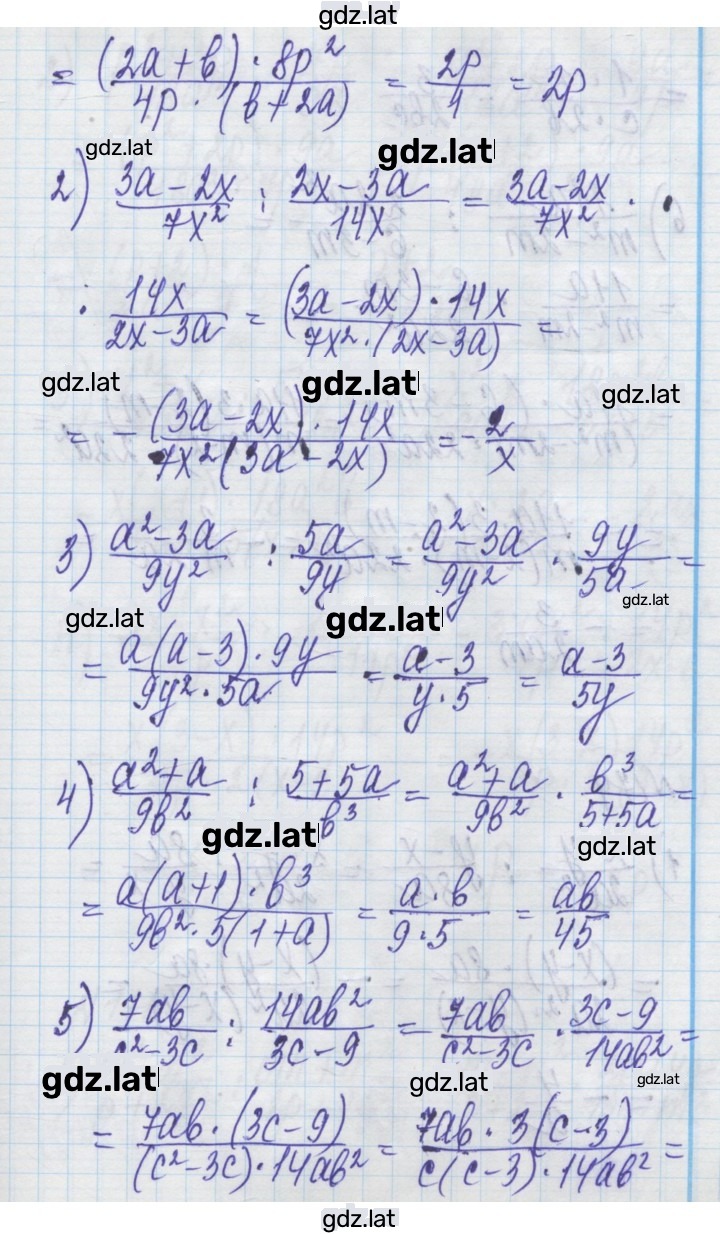 gdz.lat
= (2a + b) · 8p² / 4p · (b + 2a) = 2p / 1 = 2p
gdz.lat gdz.lat
2) 3a - 2x / 7x² : 2x - 3a / 14x = 3a - 2x / 7x² ·
· 14x / 2x - 3a = (3a - 2x) · 14x / 7x² · (2x - 3a) =
gdz.lat gdz.lat gdz.lat
= - (3a - 2x) · 14x / 7x² (3a - 2x) = - 2 / x
3) a² - 3a / 9y² : 5a / 9y = a² - 3a / 9y² · 9y / 5a =
gdz.lat gdz.lat gdz.lat
= a(a - 3) · 9y / 9y² · 5a = a - 3 / y · 5 = a - 3 / 5y
4) a² + a / 9b² : 5 + 5a / b³ = a² + a / 9b² · b³ / 5 + 5a =
gdz.lat gdz.lat
= a(a + 1) · b³ / 9b² · 5(1 + a) = a · b / 9 · 5 = ab / 45
5) 7ab / c² - 3c : 14ab² / 3c - 9 = 7ab / c² - 3c · 3c - 9 / 14ab² =
gdz.lat gdz.lat gdz.lat
= 7ab · (3c - 9) / (c² - 3c) · 14ab² = 7ab · 3(c - 3) / c(c - 3) · 14ab² =
gdz.lat